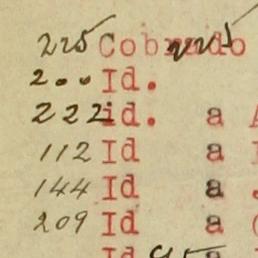 225 Cobrado 225
200 Id.
222 id. a A
112 Id a
144 Id a
209 Id a
Id a